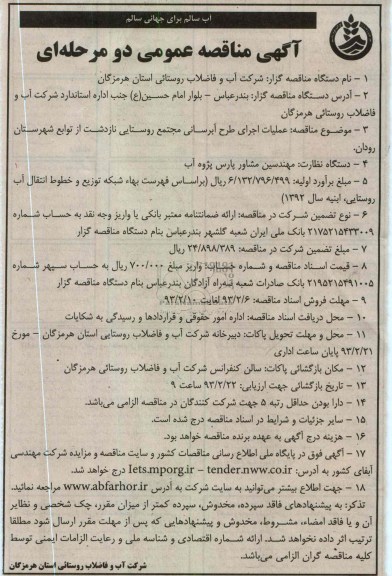 آب سالم برای جهانی سالم
آگهی مناقصه عمومی دو مرحله‌ای
۱ – نام دستگاه مناقصه گزار: شرکت آب و فاضلاب روستائی استان هرمزگان
۲ – آدرس دستگاه مناقصه گزار: بندرعباس – بلوار امام حسین(ع) جنب اداره استاندارد شرکت آب و
فاضلاب روستائی هرمزگان
۳ – موضوع مناقصه: عملیات اجرای طرح آبرسانی مجتمع روستایی نازدشت از توابع شهرستان
رودان.
۴ – دستگاه نظارت: مهندسین مشاور پارس پژوه آب
۵ – مبلغ برآورد اولیه: ۶/۱۳۲/۷۹۶/۴۹۹ ریال (براساس فهرست بهاء شبکه توزیع و خطوط انتقال آب
روستایی، ابنیه سال ۱۳۹۲)
۶ – نوع تضمین شرکت در مناقصه: ارائه ضمانتنامه معتبر بانکی یا واریز وجه نقد به حساب شماره
۲۱۷۵۲۱۵۴۳۳۰۰۹ بانک ملی ایران شعبه گلشهر بندرعباس بنام دستگاه مناقصه گزار
۷ – مبلغ تضمین شرکت در مناقصه: ۲۴/۸۹۸/۳۸۹ ریال
۸ – قیمت اسناد مناقصه و شماره حساب: واریز مبلغ ۷۰۰/۰۰۰ ریال به حساب سپهر شماره
۲۱۹۵۲۱۵۴۹۱۰۰۵ بانک صادرات شعبه شهراه آزادگان بندرعباس بنام دستگاه مناقصه گزار
۹ – مهلت فروش اسناد مناقصه: ۹۳/۲/۶ لغایت ۹۳/۲/۱۰
۱۰ – محل دریافت اسناد مناقصه: اداره امور حقوقی و قراردادها و رسیدگی به شکایات
۱۱ – محل و مهلت تحویل پاکات: دبیرخانه شرکت آب و فاضلاب روستایی استان هرمزگان – مورخ
۹۳/۲/۲۱ پایان ساعت اداری
۱۲ – مکان بازگشائی پاکات: سالن کنفرانس شرکت آب و فاضلاب روستائی هرمزگان
۱۳ – تاریخ بازگشائی جهت ارزیابی: ۹۳/۲/۲۲ ساعت ۹
۱۴ – دارا بودن حداقل رتبه ۵ جهت شرکت کنندگان در مناقصه الزامی می‌باشد.
۱۵ – سایر جزئیات و شرایط در اسناد مناقصه درج شده است.
۱۶ – هزینه درج آگهی به عهده برنده مناقصه خواهد بود.
۱۷ – آگهی فوق در پایگاه ملی اطلاع رسانی مناقصات کشور و سایت مناقصه و مزایده شرکت مهندسی
آبفای کشور به آدرس: Iets.mporg.ir – tender.nww.co.ir درج خواهد شد.
۱۸ – جهت اطلاع بیشتر می‌توانید به سایت شرکت به آدرس www.abfarhor.ir مراجعه نمائید.
تذکر: به پیشنهادهای فاقد سپرده، مخدوش، سپرده کمتر از میزان مقرر، چک شخصی و نظایر
آن و یا فاقد امضاء، مشروط، مخدوش و پیشنهادهایی که پس از مهلت مقرر ارسال شود مطلقا
ترتیب اثر داده نخواهد شد. ارائه شماره اقتصادی و شناسه ملی و رعایت الزامات ایمنی توسط
کلیه مناقصه گران الزامی می‌باشد.
شرکت آب و فاضلاب روستائی استان هرمزگان